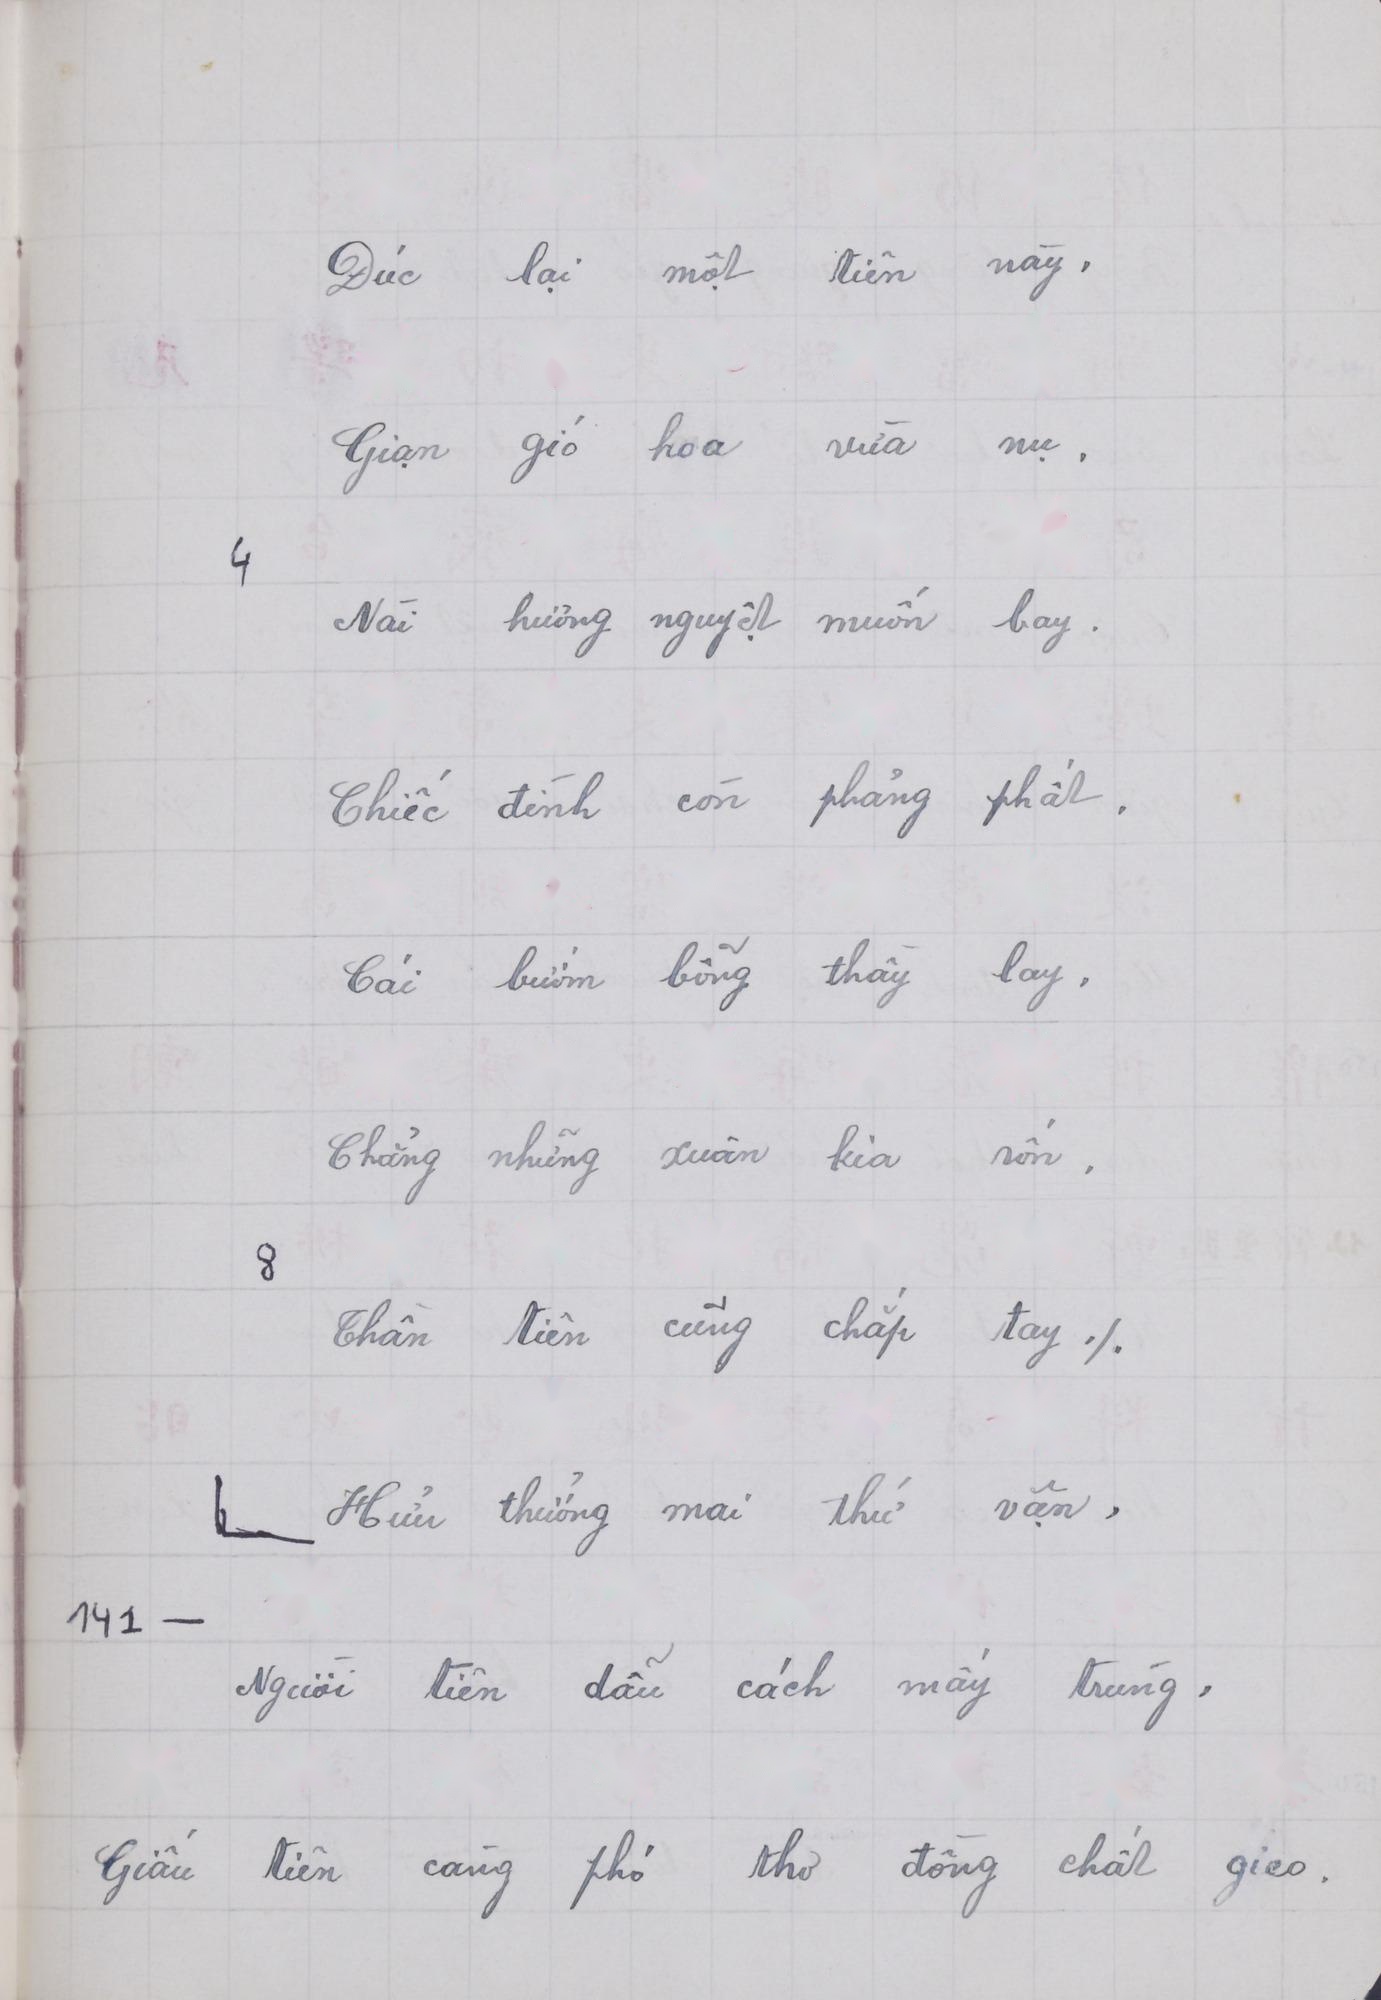 Đúc lại một tiên này,
Giạn gió hoa vừa nụ,
4
Nài hương nguyệt muốn bay.
Chiếc đình còn phảng phất,
Cái bướm bỗng thầy lay,
Chẳng những xuân kia rốn,
8
Thần tiên cũng chắp tay ./.
Hửu thưởng mai thứ vận,
141 —
Người tiên dẫu cách mấy trùng,
Giấu tiên càng phó thơ đồng chất gieo.